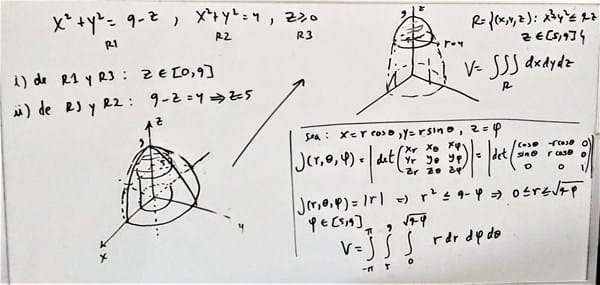 x²+y² = 9-z , x²+y² = 4 , z≥0
R1 R2 R3
i) de R1 y R3 : z ∈ [0,9]
ii) de R1 y R2 : 9-z = 4 ⇒ z=5
9
z
x
y
9
z
r=4
R = {(x,y,z) : x²+y² ≤ 9-z
z ∈ [5,9]}
V = ∭ dxdydz
R
sea : x = r cosθ, y = r sinθ , z = φ
J(r,θ,φ) = |det(xr xθ xφ
yr yθ yφ
zr zθ zφ)| = |det(cosθ -r cosθ 0
sinθ r cosθ 0
0 0 1)|
J(r,θ,φ) = |r| ⇒ r² ≤ 9-φ ⇒ 0 ≤ r ≤ √9-φ
φ ∈ [5,9]
π 9 √9-φ
V = ∫ ∫ ∫ r dr dφ dθ
-π 5 0